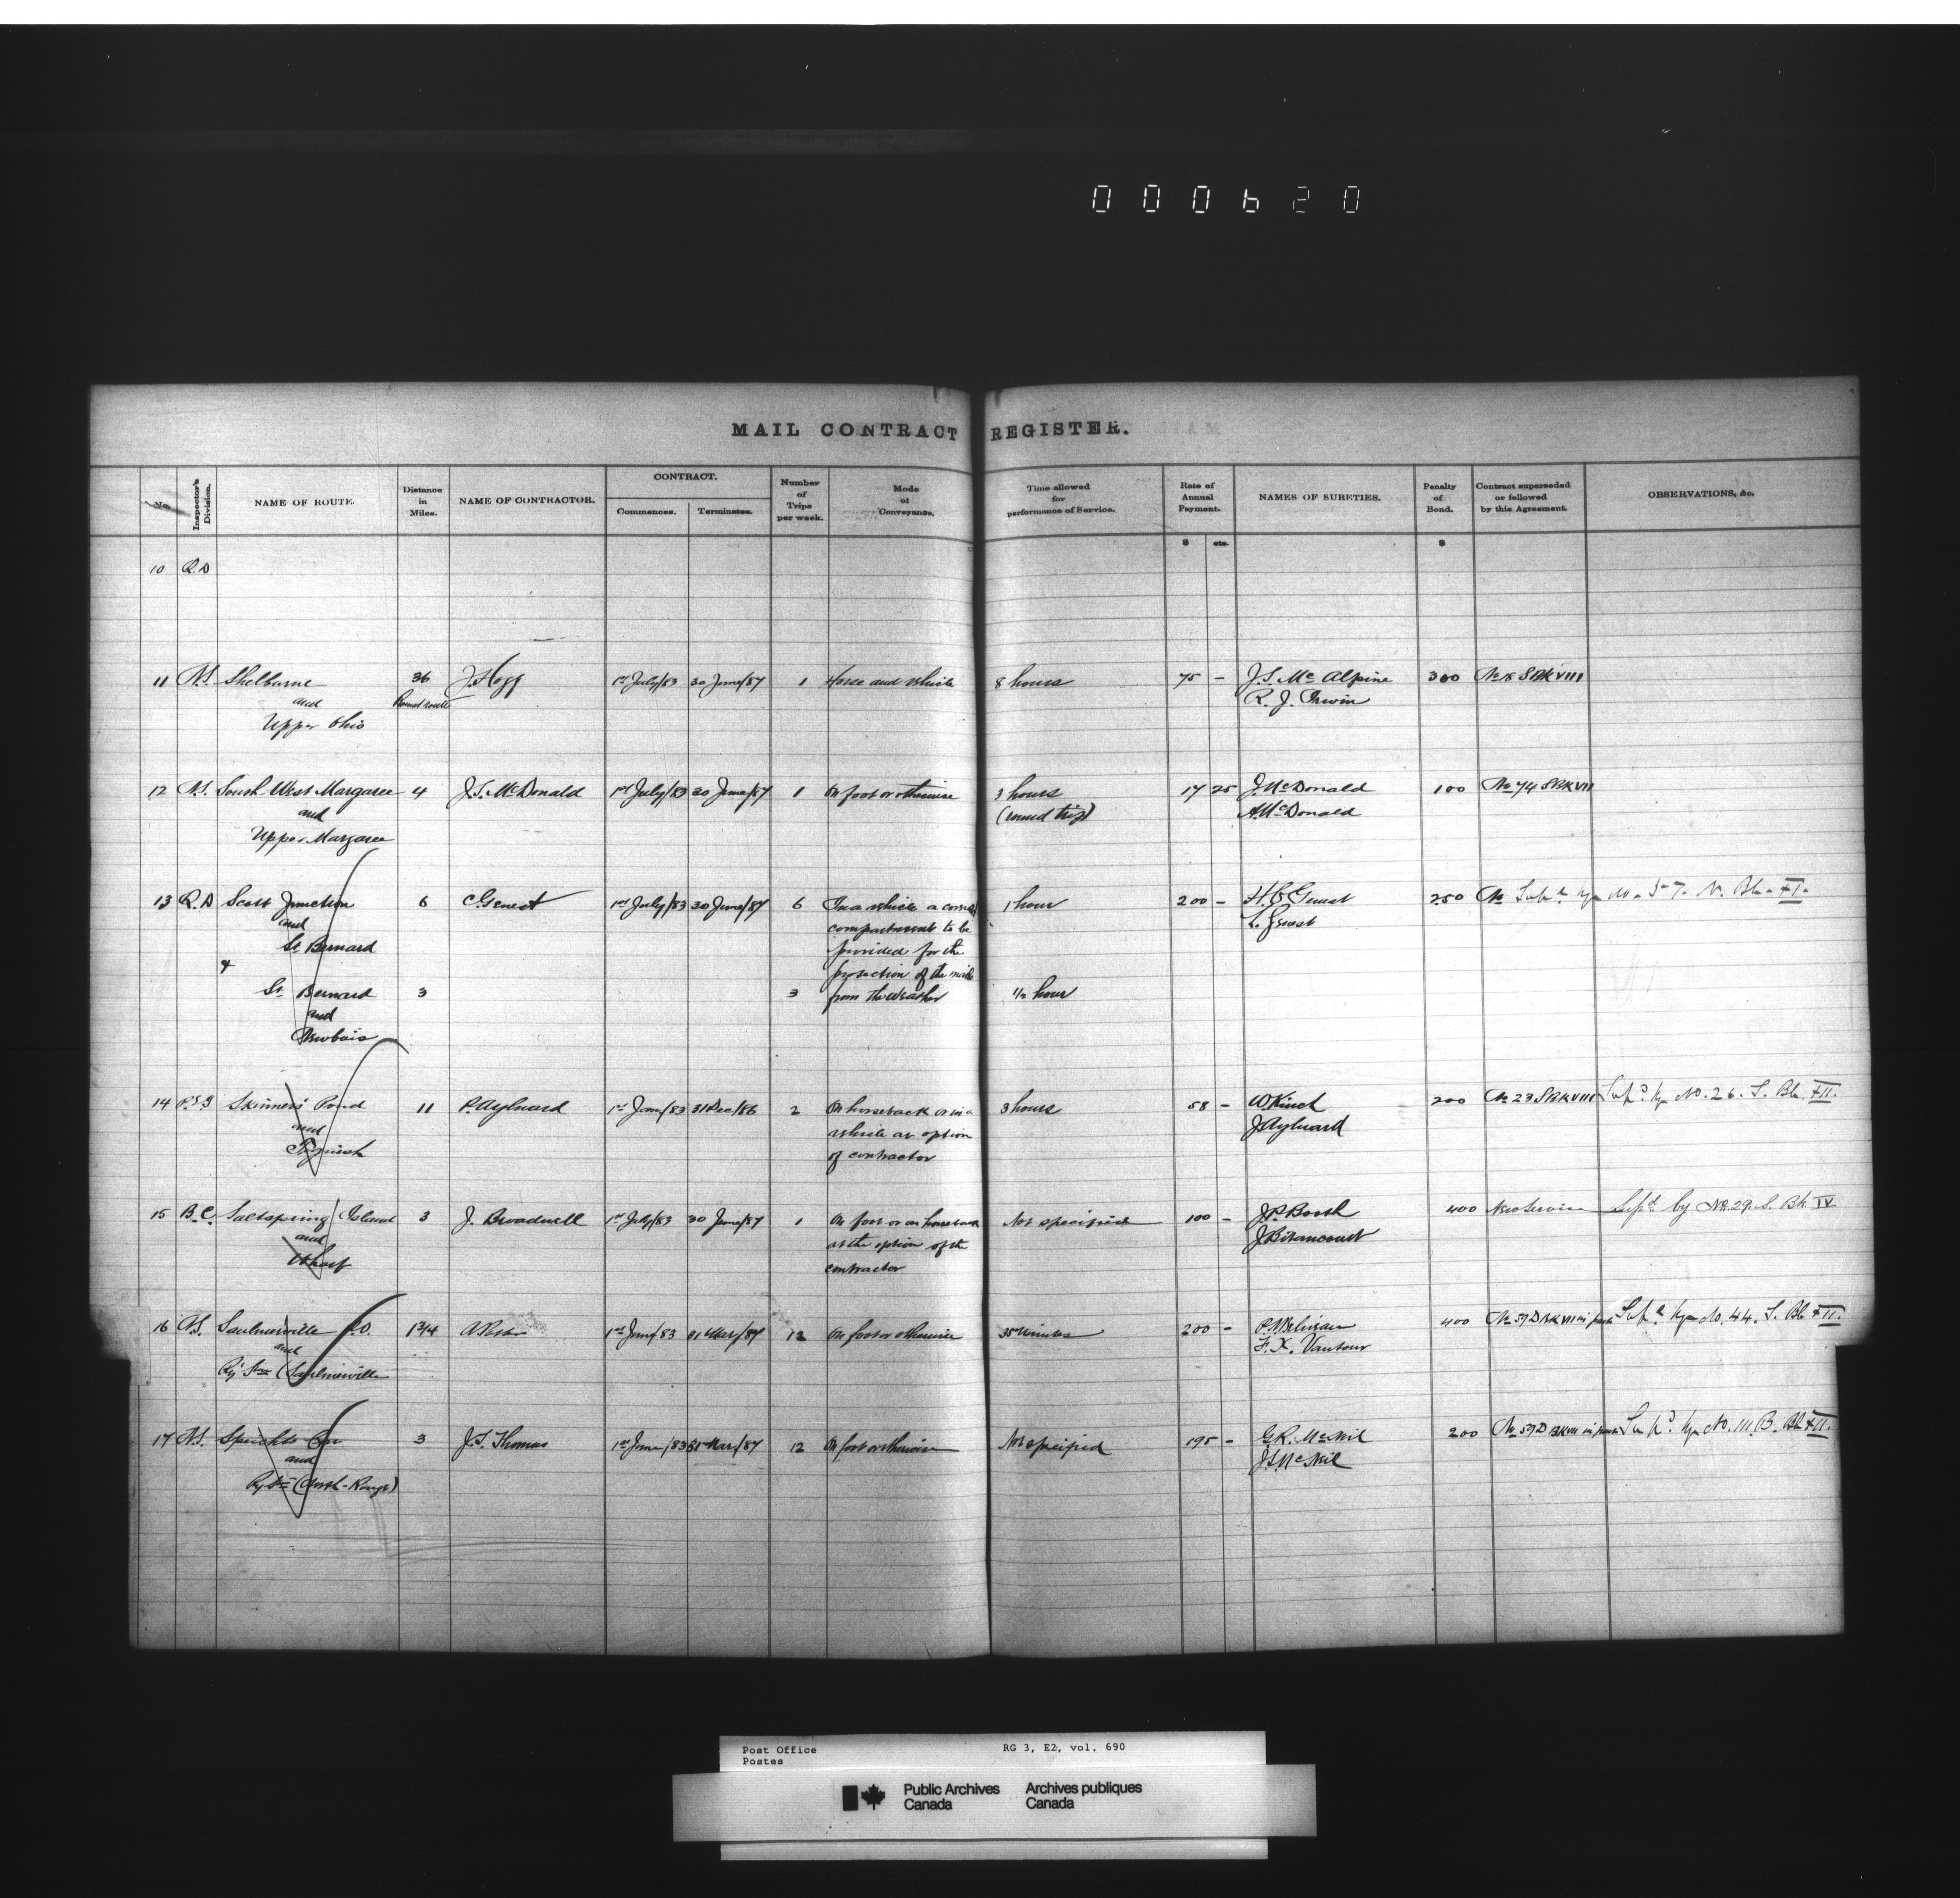 000620
MAIL CONTRACT REGISTER.
No. Inspector's Division. NAME OF ROUTE. Distance in Miles. NAME OF CONTRACTOR. CONTRACT. Commences. Terminates. Number of Trips per week. Mode of Conveyance. Time allowed for performance of Service. Rate of Annual Payment. NAMES OF SURETIES. Penalty of Bond. Contract superseded or followed by this Agreement. OBSERVATIONS, &c.
$ cts. $
10 Q.D
11 N.S. Shelburne 36 J. Hogg 1st July/83 30 June/87 1 Horse and vehicle 8 hours 75 - J.S. Mc Alpine 300 SBK VIII
and Round route R. J. Irwin
Upper Ohio
12 N.S. South West Margaree 4 J.S. McDonald 1st July/83 30 June/87 1 On foot or otherwise 3 hours 17 25 J. McDonald 100 No 74 SBK VII
and (round trip) A. McDonald
Upper Margaree
13 Q.D Scott Junction 6 C. Genest 1st July/83 30 June/87 6 In a vehicle a covered 1 hour 200 - Genest 250 No Supd by No. 57. N. Bk. XI.
and compartment to be L. Genest
St Bernard provided for the
& protection of the mails
St Bernard 3 3 from the weather 1/2 hour
and
14 P.E.I Skinners Pond 11 P. Aylward 1st June/83 31 Dec/86 2 On horseback or in a 3 hours 58 - W. Kinch 200 No 23 SBK VIII Supd by No. 26. S. Bk. XII.
and vehicle at option J. Aylward
Tignish of contractor
15 B.C. Saltspring Island 3 J. Broadwell 1st July/83 30 June/87 1 On foot or on horseback Not specified 100 - J.P. Booth 400 New Service Supd by No. 29. S. Bk IV
and at the option of the J. Bitancourt
Wharf contractor
16 N.S. Saulnierville P.O. 1 3/4 1st June/83 31 Mar/87 12 On foot or otherwise 35 Minutes 200 - P. Melanson 400 No 59 D BK VIII in part Supd by No. 44. S. Bk XII.
and F. X. Vautour
Ry Stn (Saulnierville
17 N.S. Speichts Cor 3 J.S. Thomas 1st June/83 31 Mar/87 12 On foot or otherwise Not specified 195 - G.R. McNeil 200 No 59 D BK VIII in part Supd by No. 111. B. Bk XII.
and J.S. McNeil
Ry Stn (North-Range)
Post Office RG 3, E2, vol. 690
Postes
Public Archives Archives publiques
Canada Canada